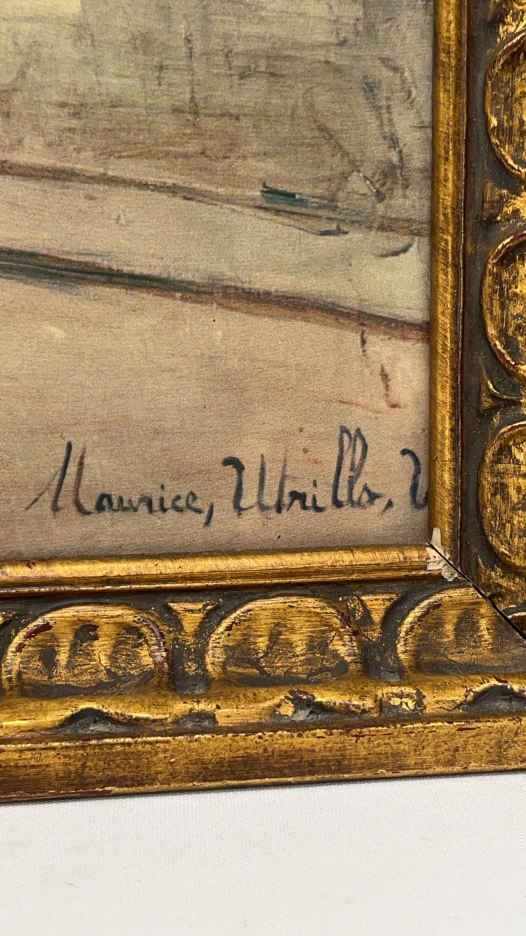 Maurice, Utrillo, V